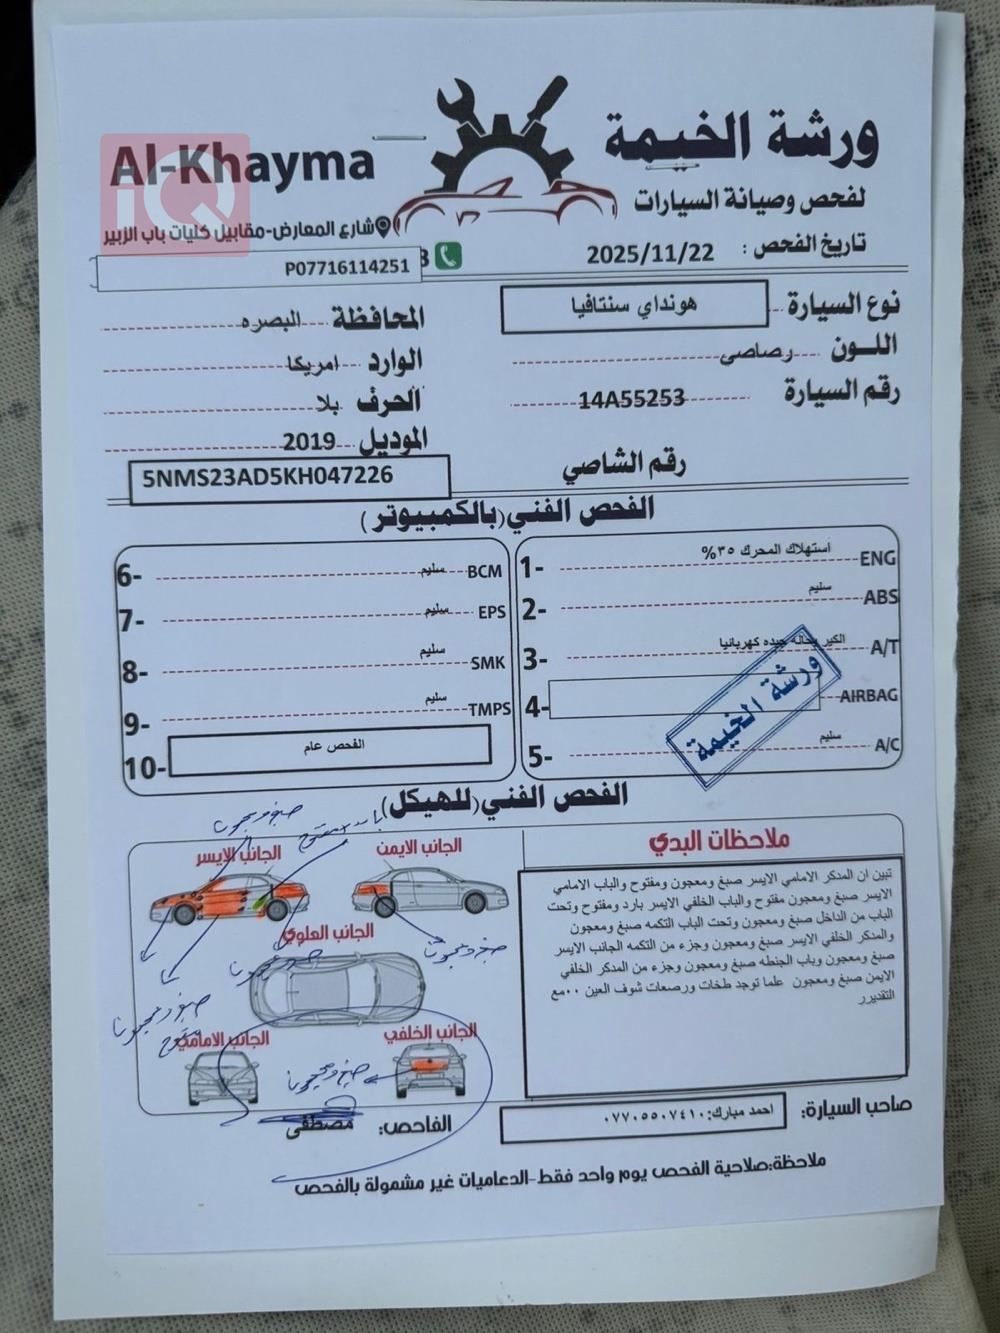 ورشة الخيمة
Al-Khayma
iQ
لفحص وصيانة السيارات
شارع المعارض-مقابيل كليات باب الزبير
تاريخ الفحص : 2025/11/22
P07716114251
نوع السيارة هونداي سنتافيا
المحافظة البصره
اللون رصاصي
الوارد امريكا
رقم السيارة 14A55253
الحرف بلا
الموديل 2019
رقم الشاصي 5NMS23AD5KH047226
الفحص الفني(بالكمبيوتر)
1- استهلاك المحرك ٣٥% ENG
2- سليم ABS
3- الكير بحاله جيده كهربائيا A/T
4- AIRBAG
5- سليم A/C
ورشة الخيمة
6- سليم BCM
7- سليم EPS
8- سليم SMK
9- سليم TMPS
10- الفحص عام
الفحص الفني(للهيكل)
ملاحظات البدي
تبين ان المدكر الامامي الايسر صبغ ومعجون ومفتوح والباب الامامي
الايسر صبغ ومعجون مفتوح والباب الخلفي الايسر بارد ومفتوح وتحت
الباب من الداخل صبغ ومعجون وتحت الباب التكمه صبغ ومعجون
والمدكر الخلفي الايسر صبغ ومعجون وجزء من التكمه الجانب الايسر
صبغ ومعجون وباب الجنطه صبغ ومعجون وجزء من المدكر الخلفي
الايمن صبغ ومعجون علما توجد طخات ورصعات شوف العين ٠٠مع
التقديرر
صبغ ومعجون
الجانب الايسر
الجانب الايمن
صبغ ومعجون
الجانب العلوي
صبغ ومعجون
صبغ ومعجون
مفتوح
الجانب الامامي
الجانب الخلفي
صبغ ومعجون
صاحب السيارة: احمد مبارك:٠٧٧٠٥٥٠٧٤١٠
الفاحص: مصطفى
ملاحظة:صلاحية الفحص يوم واحد فقط-الدعاميات غير مشمولة بالفحص